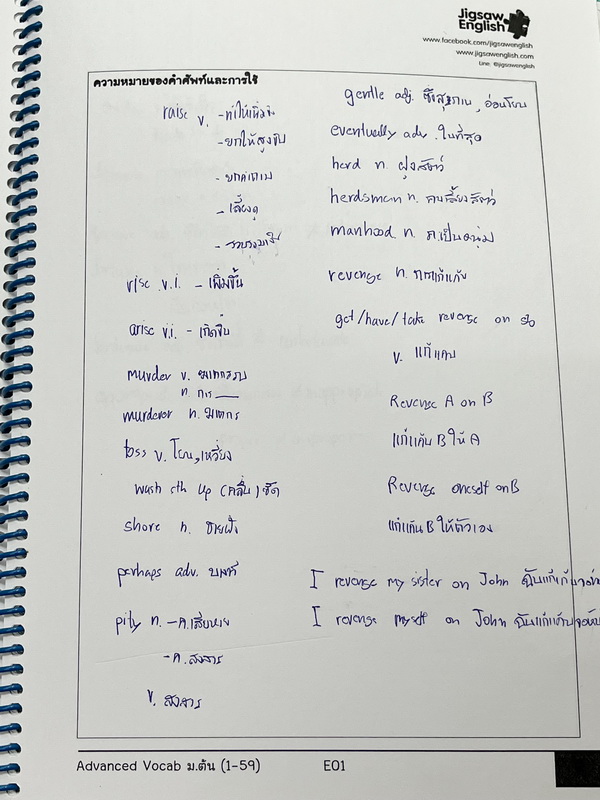 Jigsaw
English
www.facebook.com/jigsawenglish
www.jigsawenglish.com
Line: @jigsawenglish
ความหมายของคำศัพท์และการใช้
raise v. - ทำให้เพิ่มขึ้น
- ยกให้สูงขึ้น
- ยกคำถาม
- เลี้ยงดู
- รวบรวมเงิน
rise v.i. - เพิ่มขึ้น
arise v.i. - เกิดขึ้น
murder v. ฆาตกรรม
n. การ
murderer n. ฆาตกร
toss v. โยน, เหวี่ยง
wash sth up (คลื่น) ซัด
shore n. ชายฝั่ง
perhaps adv. บางที
pity n. - ค.เสียหาย
- ค. สงสาร
v. สงสาร
gentle adj. ซึ่งสุภาพ, อ่อนโยน
eventually adv. ในที่สุด
herd n. ฝูงสัตว์
herdsman n. คนเลี้ยงสัตว์
manhood n. ค.เป็นหนุ่ม
revenge n. การแก้แค้น
get/have/take revenge on sb
v. แก้แค้น
Revenge A on B
แก้แค้น B ให้ A
Revenge oneself on B
แก้แค้น B ให้ตัวเอง
I revenge my sister on John ฉันแก้แค้น
I revenge myself on John ฉันแก้แค้นจอห์น
Advanced Vocab ม.ต้น (1-59) E01